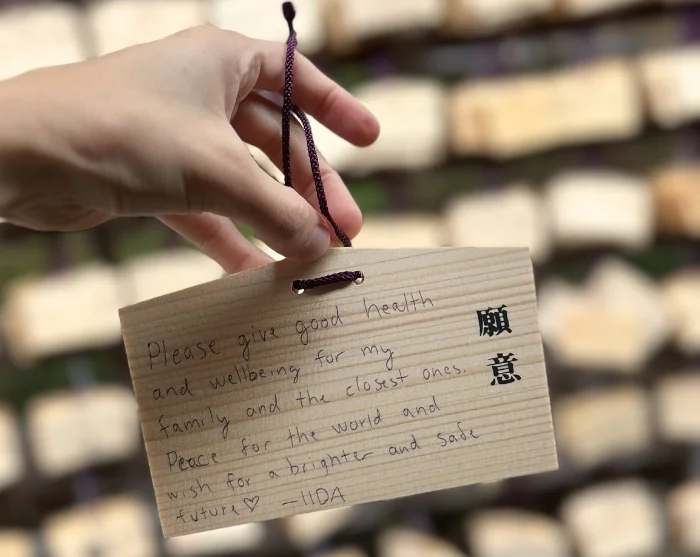 Please give good health
and wellbeing for my
family and the closest ones.
Peace for the world and
wish for a brighter and safe
future♡ –IIDA
願意